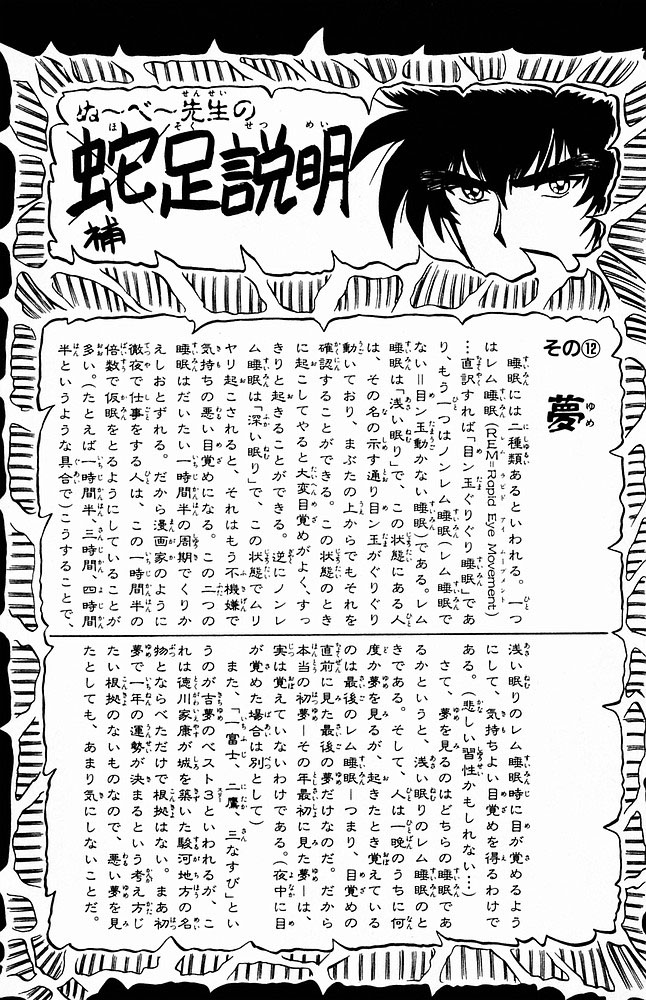 ぬ～べ～先生の
蛇足説明
補
その⑫
夢
睡眠には二種類あるといわれる。一つ
はレム睡眠（REM=Rapid Eye Movement）
…直訳すれば「目ン玉ぐりぐり睡眠」であ
り、もう一つはノンレム睡眠（レム睡眠で
ない＝目ン玉動かない睡眠）である。レム
睡眠は「浅い眠り」で、この状態にある人
は、その名の示す通り目ン玉がぐりぐり
動いており、まぶたの上からでもそれを
確認することができる。この状態のとき
に起こしてやると大変目覚めがよく、すっ
きりと起きることができる。逆にノンレ
ム睡眠は「深い眠り」で、この状態でムリ
ヤリ起こされると、それはもう不機嫌で
気持ちの悪い目覚めになる。この二つの
睡眠はだいたい一時間半の周期でくりか
えしおとずれる。だから漫画家のように
徹夜で仕事をする人は、この一時間半の
倍数で仮眠をとるようにしていることが
多い。（たとえば一時間半、三時間、四時間
半というような具合で）こうすることで、
浅い眠りのレム睡眠時に目が覚めるよう
にして、気持ちよい目覚めを得るわけで
ある。（悲しい習性かもしれない…）
さて、夢を見るのはどちらの睡眠であ
るかというと、浅い眠りのレム睡眠のと
きである。そして、人は一晩のうちに何
度か夢を見るが、起きたとき覚えている
のは最後のレム睡眠―つまり、目覚めの
直前に見た最後の夢だけなのだ。だから
本当の初夢―その年最初に見た夢―は、
実は覚えていないわけである。（夜中に目
が覚めた場合は別として）
また、「一富士、二鷹、三なすび」とい
うのが吉夢のベスト3といわれるが、こ
れは徳川家康が城を築いた駿河地方の名
物とならべただけで根拠はない。まあ初
夢で一年の運勢が決まるという考え方じ
たい根拠のないものなので、悪い夢を見
たとしても、あまり気にしないことだ。